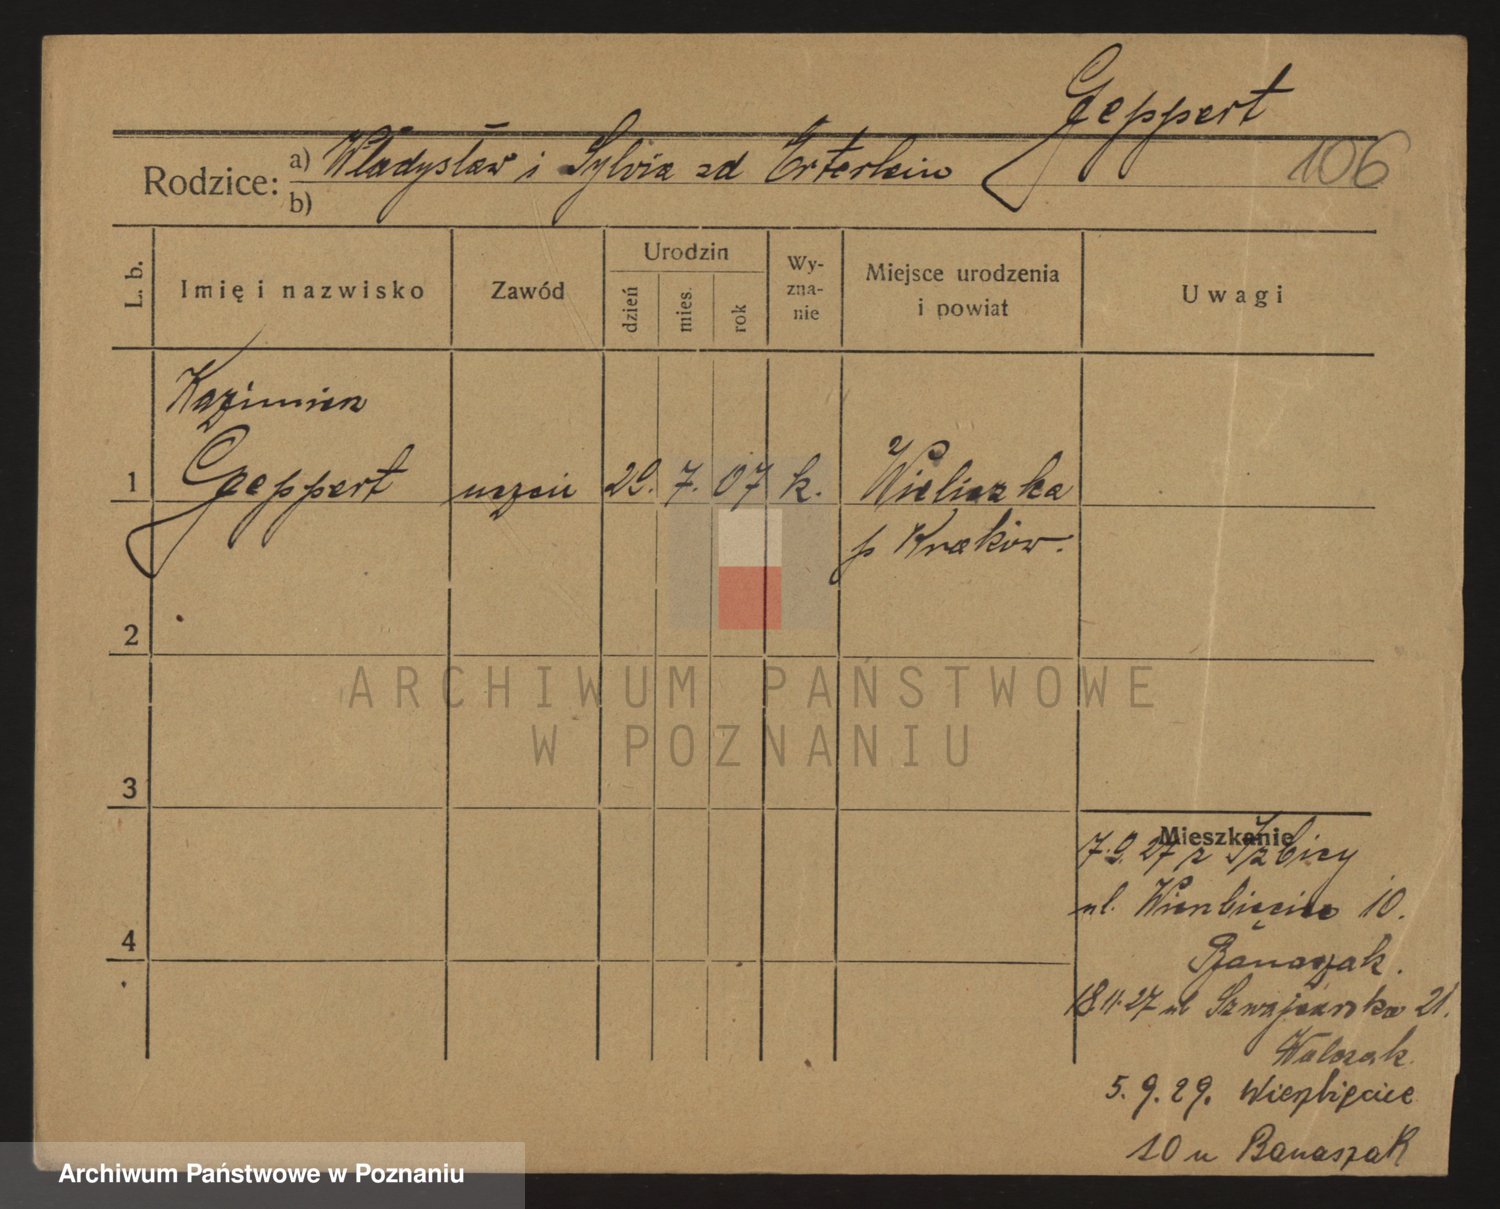 Geppert
Rodzice: a) Władysław i Sylvia zd Erterlein
b)
106
L. b.
Imię i nazwisko
Zawód
Urodzin
dzień
mies.
rok
Wy-
zna-
nie
Miejsce urodzenia
i powiat
Uwagi
Kazimierz
1 Geppert uczeń 29. 7. 07 k. Wieliczka
p Kraków.
2
ARCHIWUM PAŃSTWOWE
W POZNANIU
3
Mieszkanie
7.9.27 z Izbicy
ul. Wierzbięcice 10.
Banaszak.
4
18.11.27 ul Szwajcarska 21.
Walczak.
5.9.29. Wierzbięcice
10 u Banaszak
Archiwum Państwowe w Poznaniu